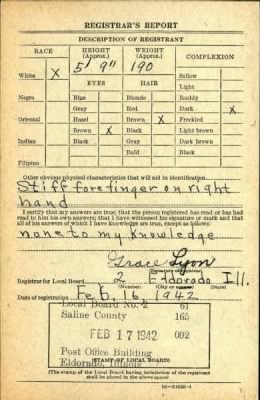 REGISTRAR'S REPORT
DESCRIPTION OF REGISTRANT
RACE HEIGHT (Approx.) WEIGHT (Approx.) COMPLEXION
5' 9" 190
White X Sallow
EYES HAIR Light
Negro Blue Blonde Ruddy
Gray Red Dark X
Oriental Hazel Brown X Freckled
Brown X Black Light brown
Indian Black Gray Dark brown
Bald Black
Filipino
Other obvious physical characteristics that will aid in identification
Stiff forefinger on right
hand
I certify that my answers are true; that the person registered has read or has had
read to him his own answers; that I have witnessed his signature or mark and that
all of his answers of which I have knowledge are true, except as follows:
none to my knowledge
Grace Lyon
(Signature of registrar)
Registrar for Local Board 2 Eldorado Ill.
(Number) (City or county)
Date of registration Feb. 16, 1942
Local Board No. 2 61
Saline County 165
FEB 17 1942 002
Post Office Building
(STAMP OF LOCAL BOARD)
Eldorado, Illinois
(The stamp of the Local Board having jurisdiction of the registrant
shall be placed in the above space)